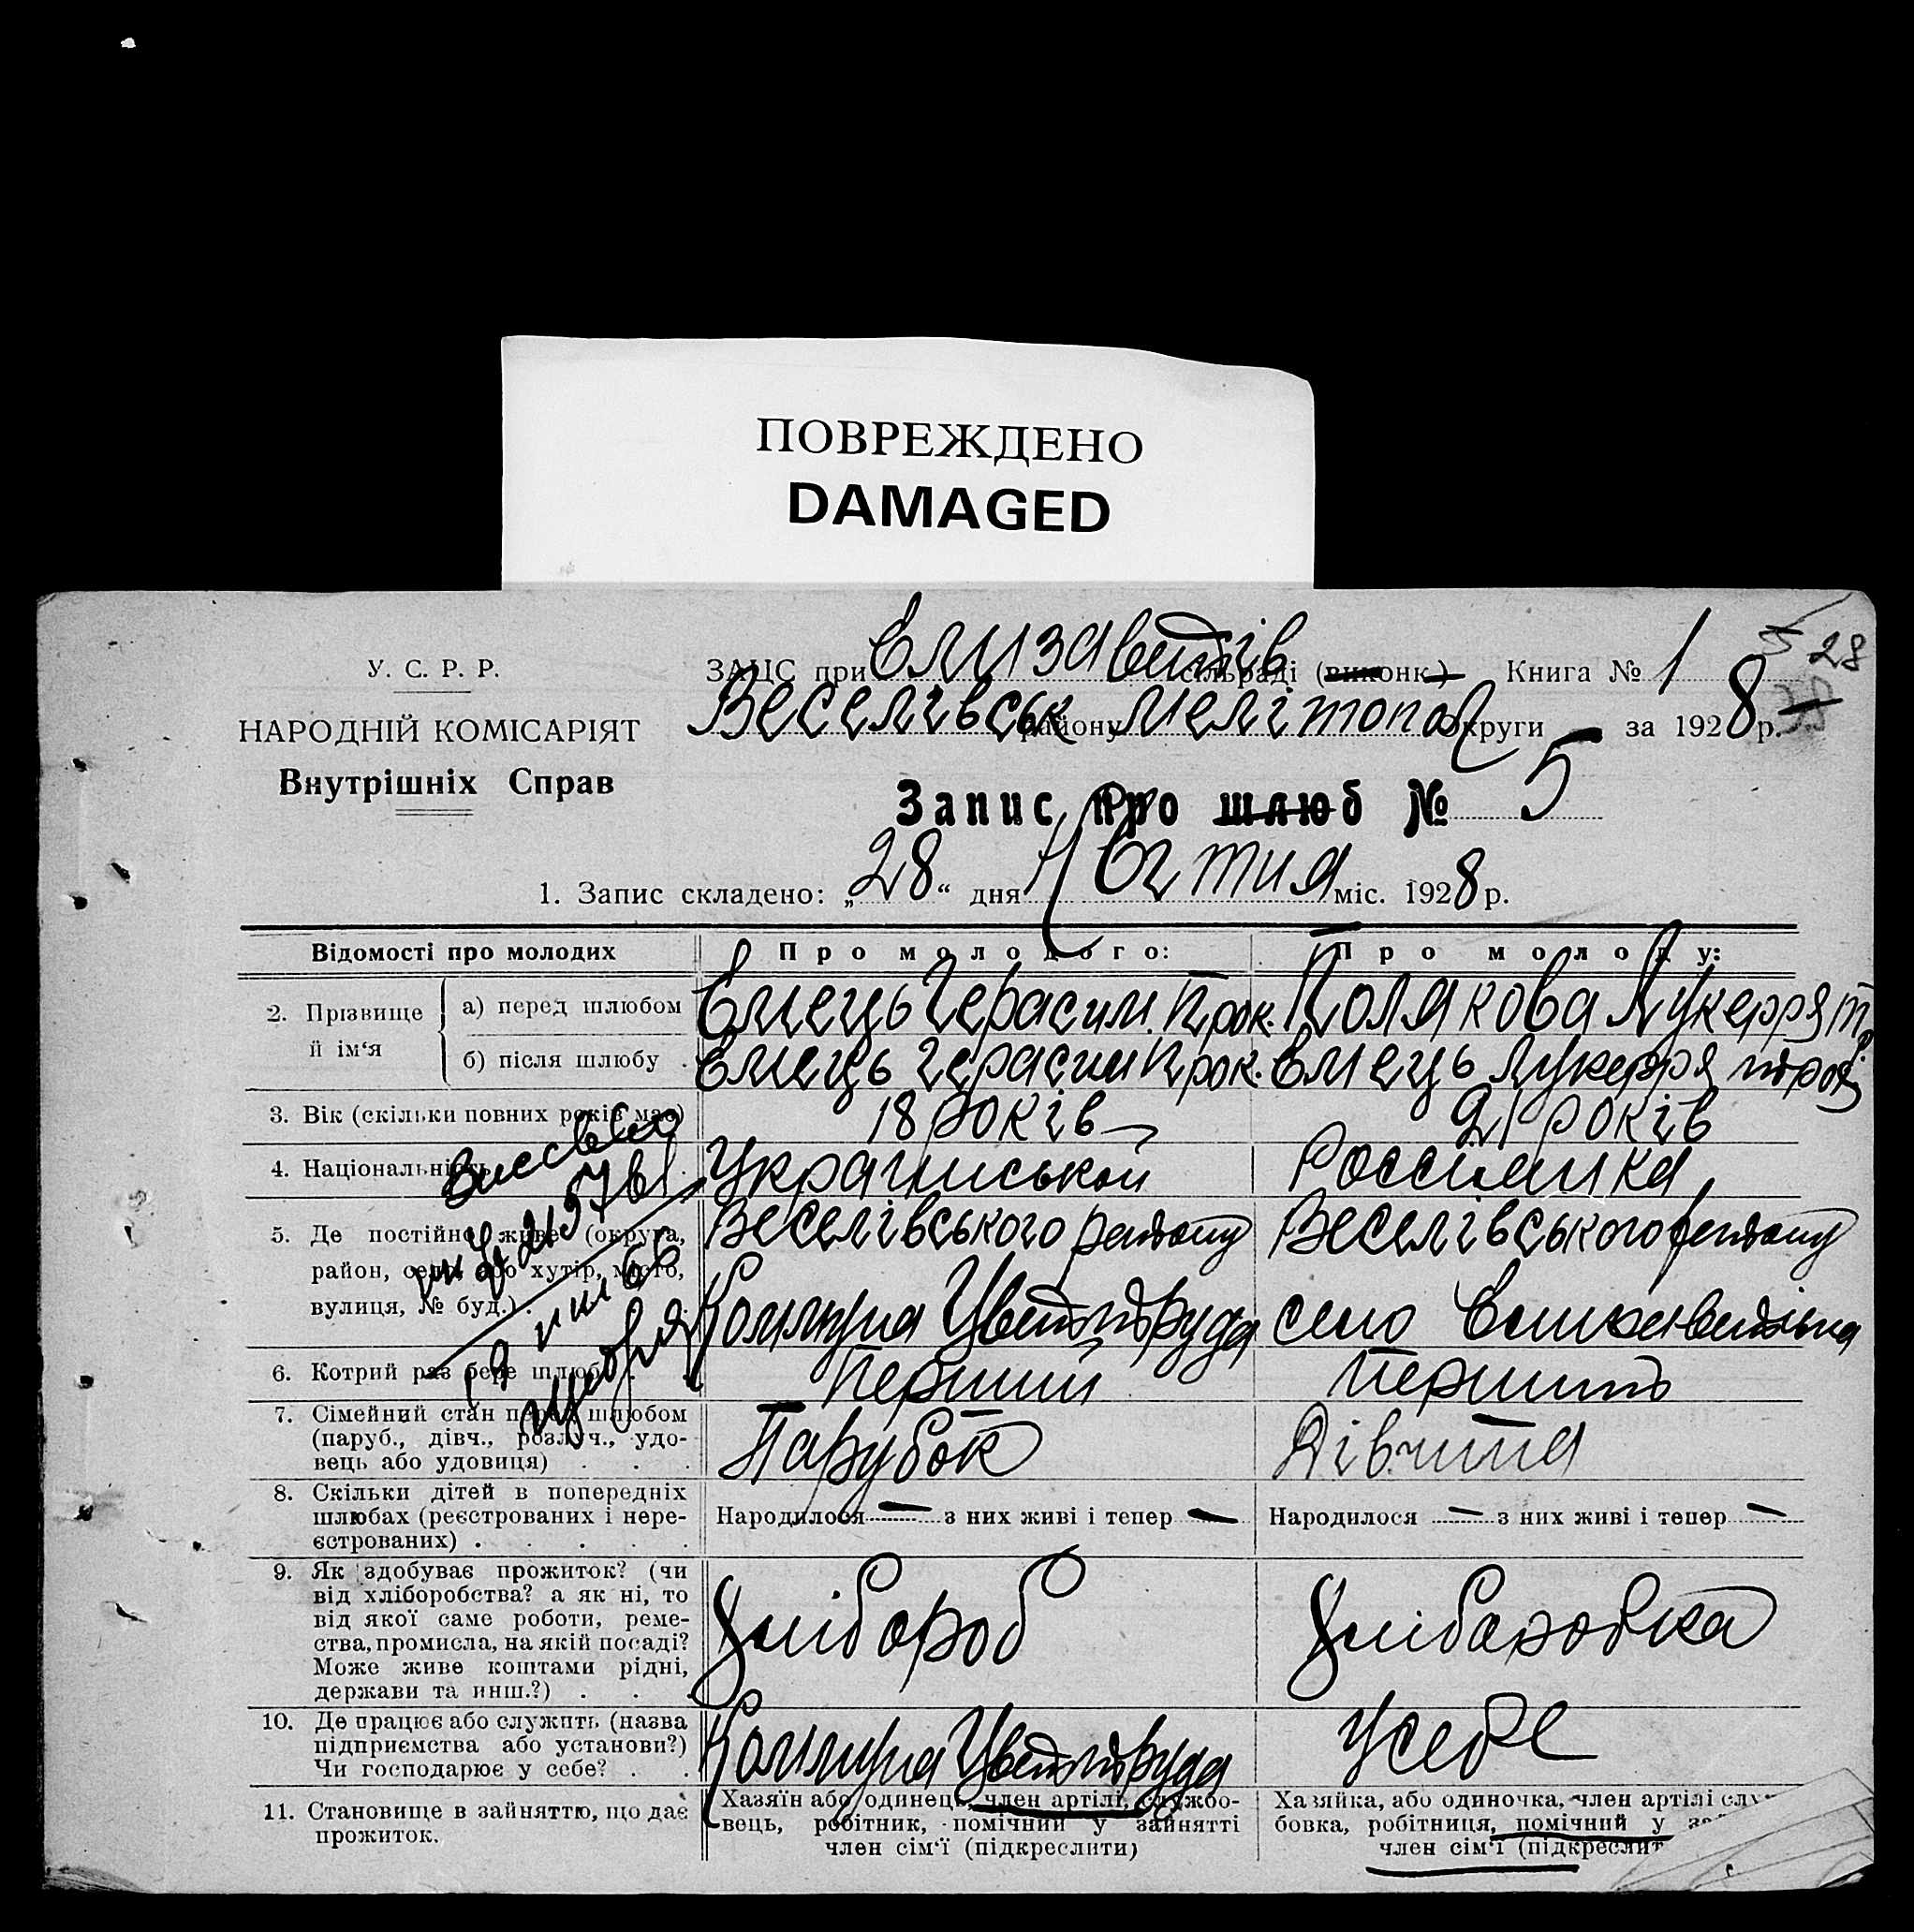 ПОВРЕЖДЕНО
DAMAGED
5 28
У. С. Р. Р.
НАРОДНІЙ КОМІСАРІЯТ
Внутрішніх Справ
ЗАЦС при Єлизаветів сільраді (виконк.) Книга № 1
Веселівськ району Мелітопол округи за 1928 р.
Запис про шлюб № 5
1. Запис складено: „28“ дня міс. 1928 р.
Відомості про молодих Про молодого: Про молоду:
2. Прізвище й ім‘я
а) перед шлюбом Ємець Герасим. Прок. Полякова Лукерря
б) після шлюбу . Ємець Герасим Прок. Ємець Лукерря
3. Вік (скільки повних років має) 18 років 21 років
4. Національність Украінськой Россиянка
5. Де постійно живе (округа, район, село або хутір, місто, вулиця, № буд.) .
Веселівського району Веселівського району
Коммуна Цвет Труда село
6. Котрий раз бере шлюб . Перший Перший
7. Сімейний стан перед шлюбом (паруб., дівч., розлуч., удовець або удовиця) . . . Парубок Дівчина
8. Скільки дітей в попередніх шлюбах (реєстрованих і нереєстрованих) . . . . .
Народилося — з них живі і тепер — Народилося — з них живі і тепер —
9. Як здобуває прожиток? (чи від хліборобства? а як ні, то від якої саме роботи, ремества, промисла, на якій посаді? Може живе коштами рідні, держави та инш.?) . . .
Хлібороб Хліборобка
10. Де працює або служить (назва підприємства або установи?) Чи господарює у себе? . .
Коммуна Цвет Труда У себе
11. Становище в зайняттю, що дає прожиток.
Хазяїн або одинець, член артілі, службовець, робітник, помічний у зайнятті член сім‘ї (підкреслити)
Хазяйка, або одиночка, член артілі бовка, робітниця, помічний у член сім‘ї